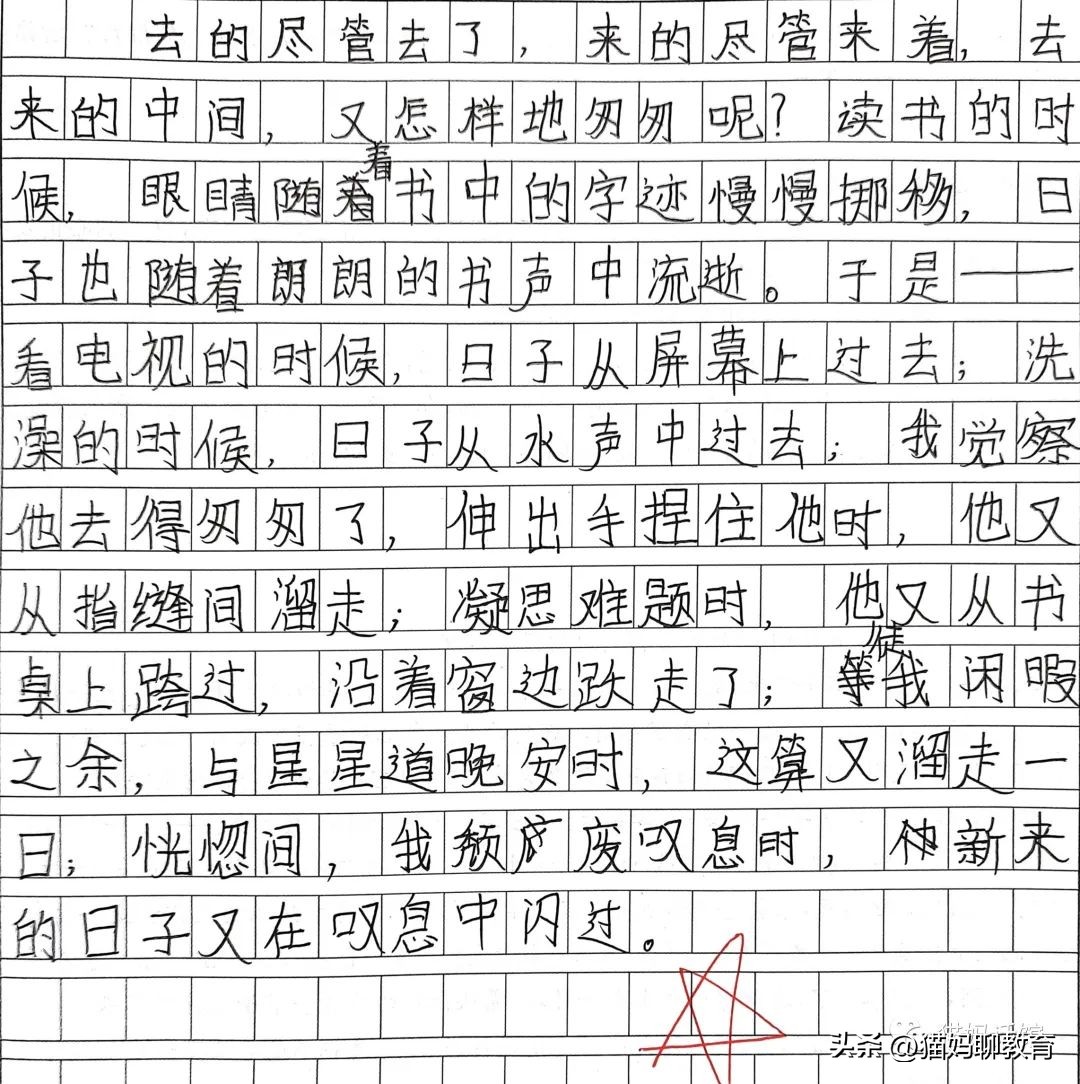 去的尽管去了，来的尽管来着，去
来的中间，又怎样地匆匆呢？读书的时
候，眼睛随着书中的字迹慢慢挪移，日
子也随着朗朗的书声中流逝。于是——
看电视的时候，日子从屏幕上过去；洗
澡的时候，日子从水声中过去；我觉察
他去得匆匆了，伸出手捏住他时，他又
从指缝间溜走；凝思难题时，他又从书
桌上跨过，沿着窗边跃走了；我闲暇
之余，与星星道晚安时，这算又溜走一
日；恍惚间，我颓废叹息时，新来
的日子又在叹息中闪过。
头条 @猫妈聊教育